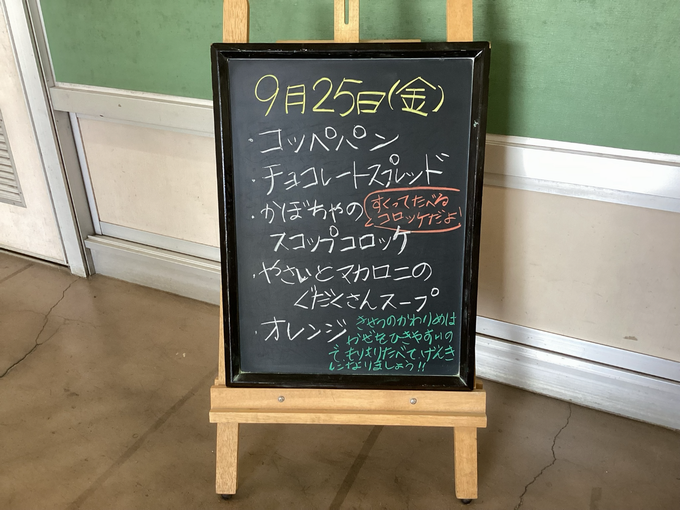 9月25日(金)
・コッペパン
・チョコレートスプレッド
・かぼちゃの
すくってたべる
コロッケだよ!
スコップコロッケ
・やさいとマカロニの
ぐだくさんスープ
・オレンジ
きせつのかわりめは
かぜをひきやすいの
で、もりもりたべてげんき
になりましょう!!